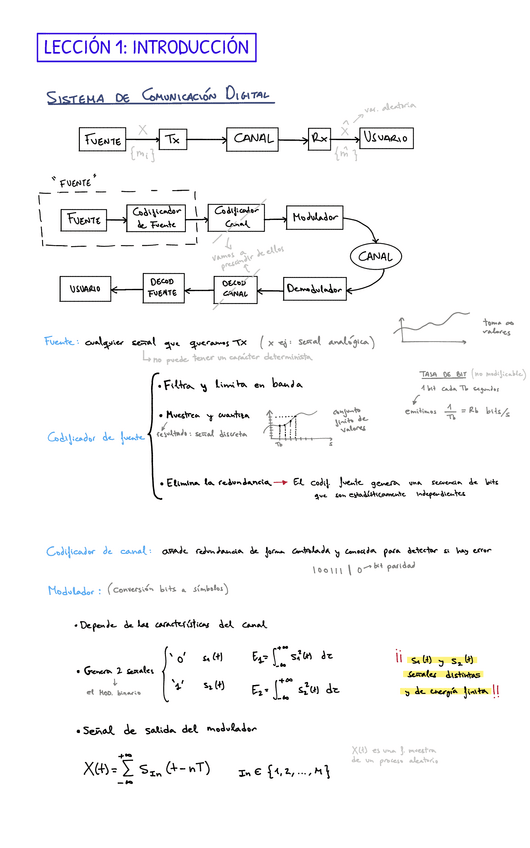 LECCIÓN 1: INTRODUCCIÓN
SISTEMA DE COMUNICACIÓN DIGITAL
var. aleatoria
FUENTE X TX CANAL RX X̂ USUARIO
{mᵢ} {m̂}
"FUENTE"
FUENTE Codificador de Fuente Codificador Canal Modulador
vamos a
prescindir de ellos
CANAL
USUARIO DECOD FUENTE DECOD CANAL Demodulador
Fuente: cualquier señal que queramos TX (x ej: señal analógica)
no puede tener un carácter determinista
toma ∞
valores
TASA DE BIT (no modificable)
1 bit cada Tb segundos
emitimos 1/Tb = Rb bits/s
Codificador de fuente
• Filtra y limita en banda
• Muestrea y cuantiza
resultado: señal discreta
conjunto
finito de
valores
Tb s
• Elimina la redundancia → El codif. fuente genera una secuencia de bits
que son estadísticamente independientes
Codificador de canal: añade redundancia de forma controlada y conocida para detectar si hay error
100111 | 0 → bit paridad
Modulador: (conversión bits a símbolos)
• Depende de las características del canal
• Genera 2 señales
el MOD. binario
'0' s₁(t) E₁ = ∫₋∞⁺∞ s₁²(t) dt
'1' s₂(t) E₂ = ∫₋∞⁺∞ s₂²(t) dt
¡¡ s₁(t) y s₂(t)
señales distintas
y de energía finita !!
• Señal de salida del modulador
X(t) = ∑₋∞⁺∞ S_In (t-nT) In ∈ {1,2,...,M}
X(t) es una f. muestra
de un proceso aleatorio